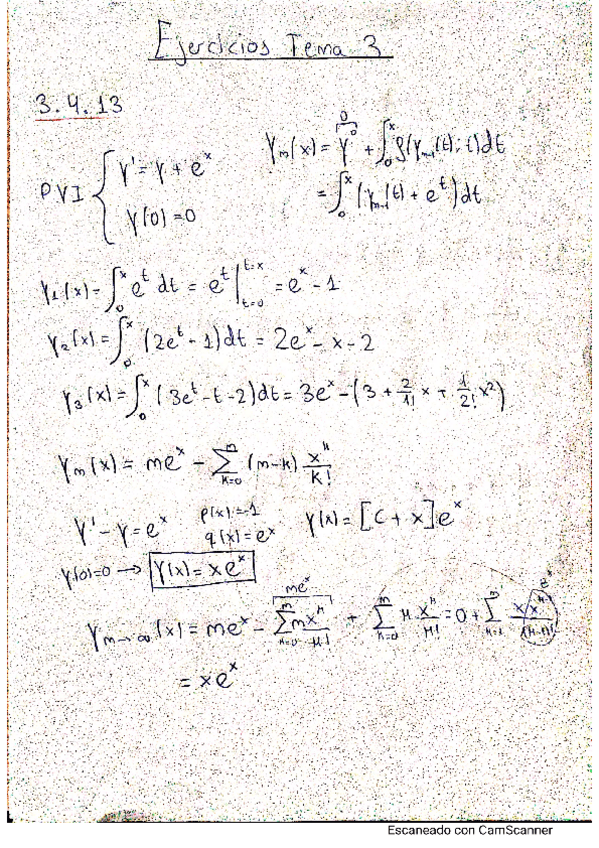 Ejercicios Tema 3
3.4.13
PVI { y' = y + e^x
y(0) = 0
y_m(x) = y^0 (0) + ∫_0^x f(y_{m-1}(t); t)dt
= ∫_0^x (y_{m-1}(t) + e^t)dt
y_1(x) = ∫_0^x e^t dt = e^t |_{t=0}^{t=x} = e^x - 1
y_2(x) = ∫_0^x (2e^t - 1)dt = 2e^x - x - 2
y_3(x) = ∫_0^x (3e^t - t - 2)dt = 3e^x - (3 + 2/1! x + 1/2! x^2)
y_m(x) = me^x - ∑_{k=0}^m (m-k) x^k/k!
y' - y = e^x p(x) = -1 q(x) = e^x y(x) = [C + x]e^x
y(0)=0 → y(x) = xe^x
y_{m→∞}(x) = me^x - ∑_{k=0}^m mx^k/k! (me^x) + ∑_{k=0}^m k·x^k/k! = 0 + ∑_{k=1}^m x x^{k-1}/(k-1)! (e^x)
= xe^x
Escaneado con CamScanner